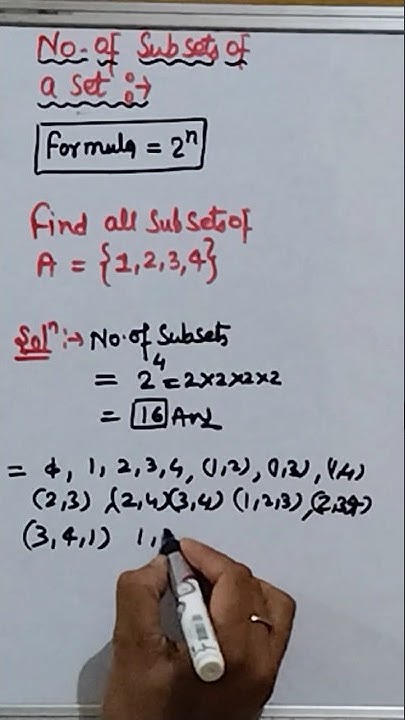 No. of Subsets of
a set :→
Formula = 2ⁿ
Find all Subsets of
A = {1,2,3,4}
Solⁿ :→ No. of Subsets
= 2⁴ = 2×2×2×2
= 16 Ans
= ϕ, 1, 2, 3, 4, (1,2), (1,3), (1,4)
(2,3), (2,4) (3,4) (1,2,3), (2,3,4)
(3,4,1) 1,